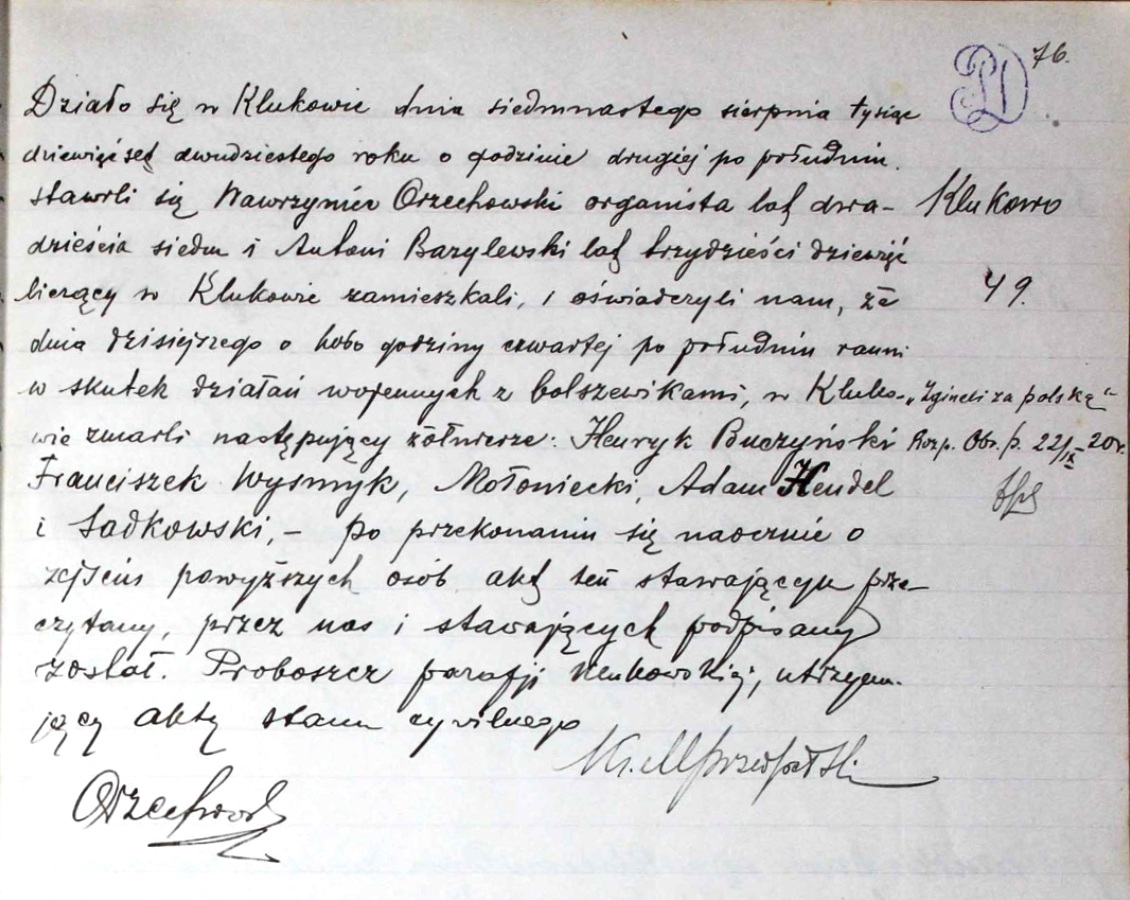 76.
Działo się w Klukowie dnia siedmnastego sierpnia tysiąc
dziewięćset dwudziestego roku o godzinie drugiej po południu.
stawili się Wawrzyniec Orzechowski organista lat dwa-
dzieścia siedm i Antoni Bazylewski lat trzydzieści dziewięć
liczący w Klukowie zamieszkali, i oświadczyli nam, że
dnia dzisiejszego o hobo godziny czwartej po południu ranni
w skutek działań wojennych z bolszewikami, w Kluko-
wie zmarli następujący żółnierze: Henryk Buczyński
Franciszek Wysmyk, Mołoniecki, Adam Hendel
i Sadkowski, – po przekonaniu się naocznie o
zejściu powyższych osób akt ten stawającym prze-
czytany, przez nas i stawających podpisany
został. Proboszcz parafji Klukowskiej, utrzym.
jący akty stanu cywilnego
Orzechowski
Klukowo
49.
„Zginęli za polskę"
Rozp. Obr. p. 22/IX 20r.